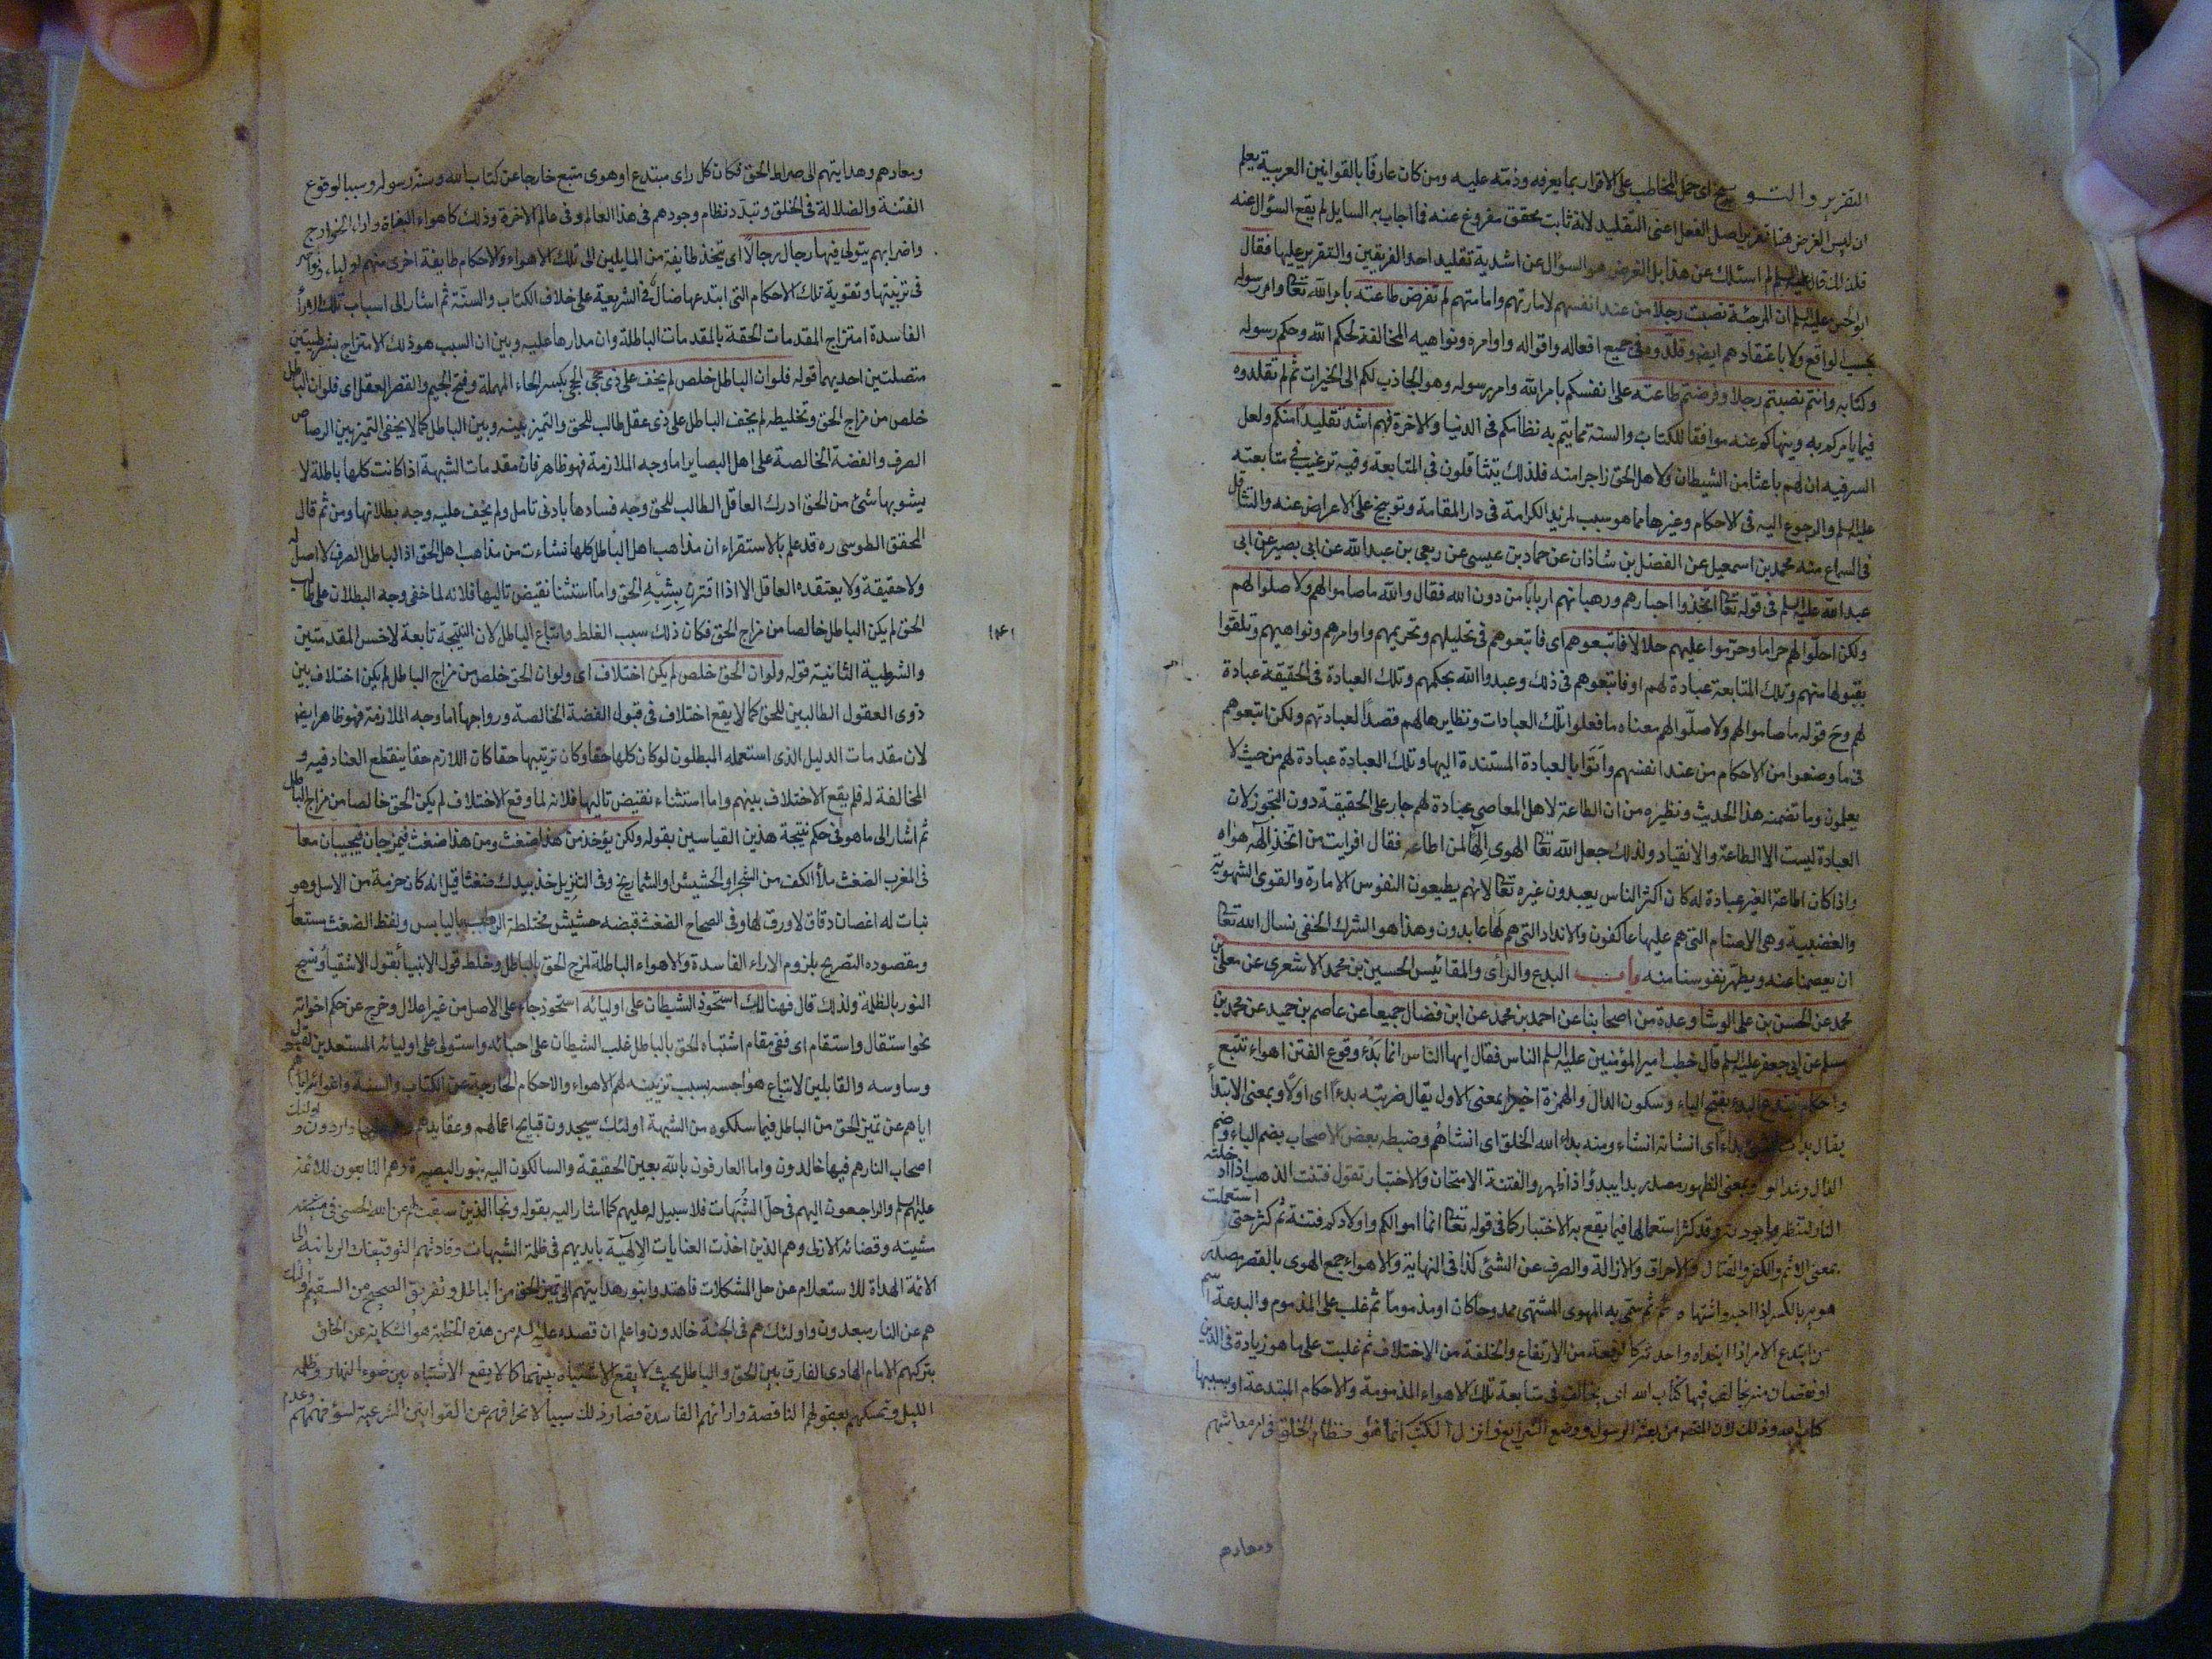 التقرير والتوبيخ اى حمل المخاطب على الاقرار بما يعرفه وذمّه عليه ومن كان عارفًا بالقوانين العربية يعلم
ان ليس الغرض هنا تقرير اصل الفعل اعنى التقليد لانه ثابت محقق مفروغ عنه فما اجاب به السايل لم يقع السؤال عنه
فلذلك قال عليه السلم لم اسئلك عن هذا بل الغرض هو السؤال عن اشدية تقليد احد الفريقين والتقرير عليها فقال
ابو الحسن عليه السلم ان المرجئة نصبت رجلا من عند انفسهم لامارتهم وامامتهم لم تفرض طاعته بامر الله تعالى وامر رسوله
بحسب الواقع ولا باعتقادهم ايضا وقلّدوه فى جميع افعاله واقواله واوامره ونواهيه المخالفة لحكم الله وحكم رسوله
وكتابه وانتم نصبتم رجلا وفرضتم طاعته على انفسكم بامر الله وامر رسوله وهو الجاذب لكم الى الخيرات ثم لم تقلدوه
فيما يامركم به وينهاكم عنه موافقا للكتاب والسنة مما يتم به نظامكم فى الدنيا والاخرة فهم اشد تقليدًا منكم ولعل
السر فيه ان لهم باعثا من الشيطان ولاهل الحق زاجرا منه فلذلك يتثاقلون فى المتابعة وفيه ترغيب فى متابعته
عليه السلم والرجوع اليه فى الاحكام وغيرها مما هو سبب لمزيد الكرامة فى دار المقامة وتوبيخ على الاعراض عنه والتثاقل
فى السماع منه محمد بن اسمعيل عن الفضل بن شاذان عن حماد بن عيسى عن ربعى بن عبد الله عن ابى بصير عن ابى
عبد الله عليه السلم فى قوله تعالى اتخذوا احبارهم ورهبانهم اربابًا من دون الله فقال والله ما صاموا لهم ولا صلّوا لهم
ولكن احلّوا لهم حراما وحرّموا عليهم حلالا فاتبعوهم اى فاتبعوهم فى تحليلهم وتحريمهم واوامرهم ونواهيهم وتلقوا
بقبولها منهم وتلك المتابعة عبادة لهم او فاتبعوهم فى ذلك وعبدوا الله بحكمهم وتلك العبادة فى الحقيقة عبادة
لهم وح قوله ما صاموا لهم ولا صلّوا لهم معناه ما فعلوا تلك العبادات ونظايرها لهم قصدًا لعبادتهم ولكن اتبعوهم
فى ما وضعوا من الاحكام من عند انفسهم وأتَوا بالعبادة المستندة اليها وتلك العبادة عبادة لهم من حيث لا
يعلمون وما تضمنه هذا الحديث ونظيره من ان الطاعة لاهل المعاصى عبادة لهم جار على الحقيقة دون التجوز لان
العبادة ليست الا الطاعة والانقياد ولذلك جعل الله تعالى الهوى الٰهًا لمن اطاعه فقال افرايت من اتخذ الٰهه هواه
واذا كان اطاعة الغير عبادة له كان اكثر الناس يعبدون غيره تعالى لانهم يطيعون النفوس الامارة والقوى الشهوية
والغضبية وهى الاصنام التى هم عليها عاكفون والانداد التى هم لها عابدون وهذا هو الشرك الخفى نسال الله تعالى
ان يعصمنا عنه ويطهّر نفوسنا منه باب البدع والرأى والمقائيس الحسين بن محمد الاشعرى عن معلى بن
محمد عن الحسن بن على الوشا وعدة من اصحابنا عن احمد بن محمد عن ابن فضال جميعا عن عاصم بن حميد عن محمد بن
مسلم عن ابى جعفر عليه السلم قال خطب امير المؤمنين عليه السلم الناس فقال ايها الناس انما بَدْء وقوع الفتن اهواء تتبع
واحكام تبتدع البدء بفتح الباء وسكون الدال والهمزة اخيرا بمعنى الاول يقال ضربته بدءًا اى اولًا وبمعنى الابتدأ
يقال بدأت الشئ بدأً اى انشاته انشاء ومنه بداء الله الخلق اى انشأهُم وضبطه بعض الاصحاب بضم الباء وضم
الدال وشد الواو بمعنى الظهور مصدر بدا يبدؤ اذا ظهر والفتنة الامتحان والاختبار تقول فتنت الذهب اذا ادخلته
النار لتنظر ما جودته وقد كثر استعمالها فيما يقع به الاختبار كما فى قوله تعالى انما اموالكم واولادكم فتنة ثم كثر حتى استعملت
بمعنى الاثم والكفر والقتال والاحراق والازالة والصرف عن الشئ كذا فى النهاية والاهواء جمع الهوى بالقصر مصدر
هويه بالكسر اذا احبه واشتهاه ثم سمّى به المهوى المشتهى ممدوحا كان او مذموما ثم غلب على المذموم والبدعة اسم
من ابتدع الامر اذا ابتداه واحدثه كالرفعة من الارتفاع والخلفة من الاختلاف ثم غلبت على ما هو زيادة فى الدين
او نقصان منه يخالف فيها كتاب الله اى يخالف فى متابعة تلك الاهواء المذمومة والاحكام المبتدعة او بسببها
كتاب الله وذلك لان المقصود من بعثة الرسول ووضع الشرايع وانزال الكتب انما هو نظام الخلق فى امر معاشهم
ومعادهم
ومعادهم وهدايتهم الى صراط الحق فكان كل راى مبتدع او هوى متبع خارجا عن كتاب الله وسنة رسوله وسببا لوقوع
الفتنة والضلالة فى الخلق وتبدّد نظام وجودهم فى هذا العالم وفى عالم الاخرة وذلك كاهواء البغاة واراء الخوارج
واضرابهم يتولى فيها رجال رجالًا اى يتخذ طايفة من المايلين الى تلك الاهواء والاحكام طايفة اخرى منهم اولياء ونواصر
فى تربيتها وتقوية تلك الاحكام التى ابتدعها ضالّ فى الشريعة على خلاف الكتاب والسنّة ثم اشار الى اسباب تلك الاراء
الفاسدة امتزاج المقدمات الحقة بالمقدمات الباطلة وان مدارها عليه وبين ان السبب هو ذلك الامتزاج بشرطيتين
متصلتين احديهما قوله فلو ان الباطل خلص لم يخف على ذى حجى الحجى بكسر الحاء المهملة وفتح الجيم والقصر العقل اى فلو ان الباطل
خلص من مزاج الحق وتخليطه لم يخف الباطل على ذى عقل طالب للحق والتميز بينه وبين الباطل كما لا يخفى التميز بين الرصاص
الصرف والفضة الخالصة على اهل البصاير اما وجه الملازمة فهو ظاهر فان مقدمات الشبهة اذا كانت كلها باطلة لا
يشوبها شئ من الحق ادرك العاقل الطالب للحق وجه فسادها بادنى تامل ولم يخف عليه وجه بطلانها ومن ثم قال
المحقق الطوسى ره قد علم بالاستقراء ان مذاهب اهل الباطل كلها نشاءت من مذاهب اهل الحق اذ الباطل الصرف لا اصل له
ولا حقيقة ولا يعتقده العاقل الا اذا اقترن بِشِبْهِ الحق واما استثنا نقيض تاليها فلانه لما خفى وجه البطلان على طالب
الحق لم يكن الباطل خالصا من مزاج الحق فكان ذلك سبب الغلط واتباع الباطل لان النتيجة تابعة لاخس المقدمتين
والشرطية الثانية قوله ولو ان الحق خلص لم يكن اختلاف اى ولو ان الحق خلص من مزاج الباطل لم يكن اختلاف بين
ذوى العقول الطالبين للحق كما لا يقع اختلاف فى قبول الفضة الخالصة ورواجها اما وجه الملازمة فهو ظاهر ايضا
لان مقدمات الدليل الذى استعمله المبطلون لو كان كلها حقا وكان ترتيبها حقا كان اللازم حقا ينقطع العناد فيه و
المخالفة له فلم يقع الاختلاف بينهم واما استثناء نقيض تاليها فلانه لما وقع الاختلاف لم يكن الحق خالصا من مزاج الباطل
ثم اشار الى ما هو فى حكم نتيجة هذين القياسين بقوله ولكن يؤخذ من هذا ضغث ومن هذا ضغث فيمزجان فيجيبان معا
فى المغرب الضغث ملأ الكف من الشجر او الحشيش او الشماريخ وفى التنزيل خذ بيدك ضغثا قيل انه كان حزمة من الاسل وهو
نبات له اغصان دقاق لا ورق لها وفى الصحاح الضغث قبضه حشيش مختلطة الرطب باليابس ولفظ الضغث مستعار
ومقصوده التصريح بلزوم الاراء الفاسدة والاهواء الباطلة لمزج الحق بالباطل وخلط قول الانبيأ بقول الاشقيأ ونسج
النور بالظلمة ولذلك قال فهنالك استحوذ الشيطان على اوليائه استحوذ جاء على الاصل من غير اعلال وخرج عن حكم اخواته
نحو استقال واستقام اى ففى مقام اشتباه الحق بالباطل غلب الشيطان على احبائه واستولى على اوليائه المستعدين لقبول
وساوسه والقابلين لاتباع هواجسه بسبب تزيينه لهم الاهواء والاحكام الخارجة عن الكتاب والسنة واغوائه
اياهم عن تميز الحق من الباطل فيما سلكوه من الشبهة اولئك سيجدون قبايح اعمالهم وعقايدهم وهم عليها واردون و اولئك
اصحاب النار هم فيها خالدون واما العارفون بالله بعين الحقيقة والسالكون اليه بنور البصيرة وهم التابعون للائمة
عليهم السلم والراجعون اليهم فى حل الشُبُهات فلا سبيل له عليهم كما اشار اليه بقوله ونجا الذين سبقت لهم من الله الحسنى فى
مشيته وقضائه الازلى وهم الذين اخذت العنايات الالٰهية بايديهم فى ظلمة الشبهات وقادتهم التوفيقات الربانية الى
الائمة الهداة للاستعلام عن حل المشكلات فاهتدوا بنور هدايتهم الى تميز الحق من الباطل وتفريق الصحيح من السقيم اولئك
هم عن النار مبعدون واولئك هم فى الجنة خالدون واعلم ان قصده عليه السلم من هذه الخطبة هو الشكاية عن الخلق
بتركهم الامام الهادى الفارق بين الحق والباطل بحيث لا يقع الاشتباه بينهما كما لا يقع الاشتباه بين ضوء النهار وظلمة
الليل وتمسكهم بعقولهم الناقصة وارائهم الفاسدة فصار ذلك سببا لانحرافهم عن القوانين الشرعية لسوء فهمهم وعدم